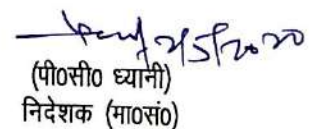 25/5/2020
(पी0सी0 ध्यानी)
निदेशक (मा0सं0)